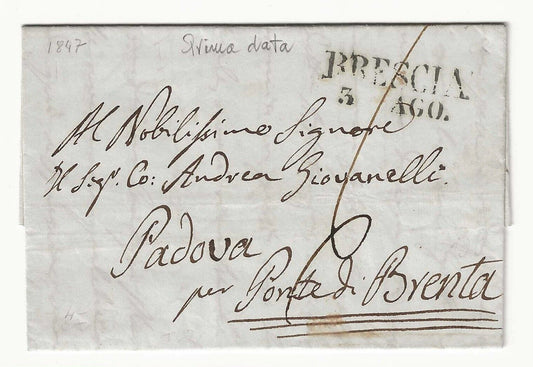 1847 Prima data
BRESCIA
3 AGO.
Al Nobilissimo Signore
Il Sigr. Co: Andrea Giovanelli.
Padova
per Ponte di Brenta